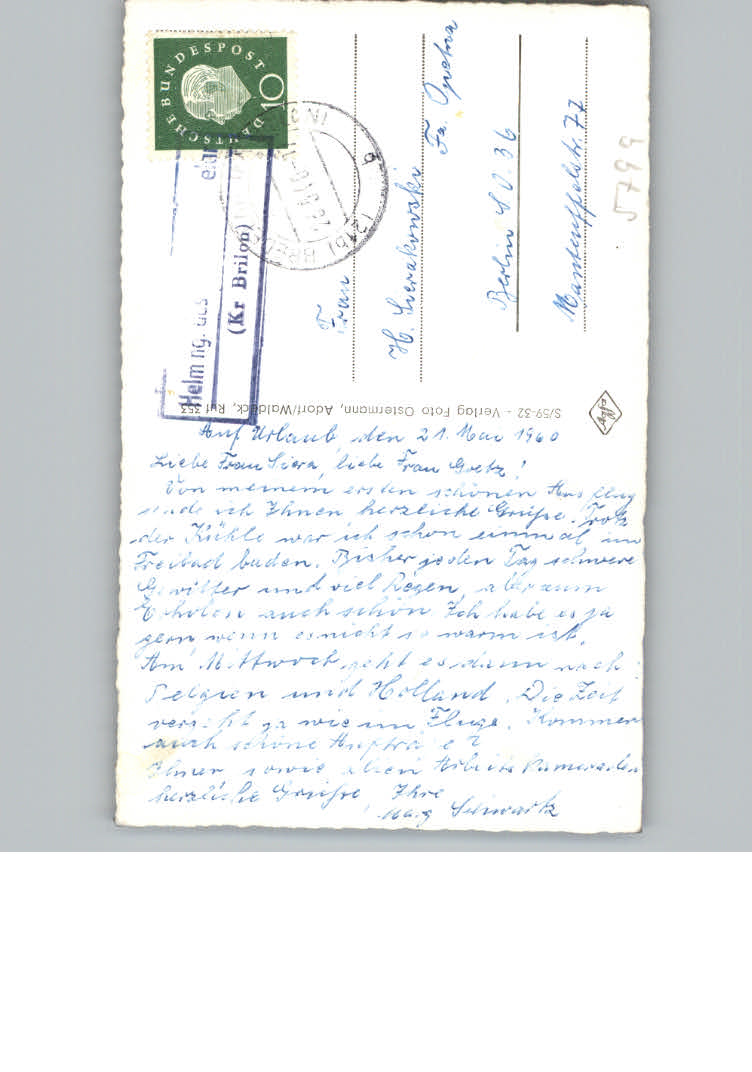 Auf Urlaub, den 21. Mai 1960
Liebe Frau Siera, liebe Frau Goetz!
Von meinem ersten schönen Ausflug
sende ich Ihnen herzliche Grüße. Trotz
der Kühle war ich schon einmal im
Freibad baden. Bisher jeden Tag schwere
Gewitter und viel Regen, aber zum
Erholen auch schön. Ich habe es ja
gern, wenn es nicht so warm ist.
Am Mittwoch geht es dann nach
Belgien und Holland. Die Zeit
vergeht ja wie im Fluge. Kommen
auch schöne Aufträge?
Ihnen sowie allen Arbeitskameraden
herzliche Grüße Ihre
Marg. Schwartz
Frau
H. Sierakowski
Fa.
Berlin S.O. 36
Manteuffelstr. 77
5799
DEUTSCHE BUNDESPOST
10
(Kr Brilon)
S/59-32 - Verlag Foto Ostermann, Adorf/Waldeck, Ruf 353
Agfa